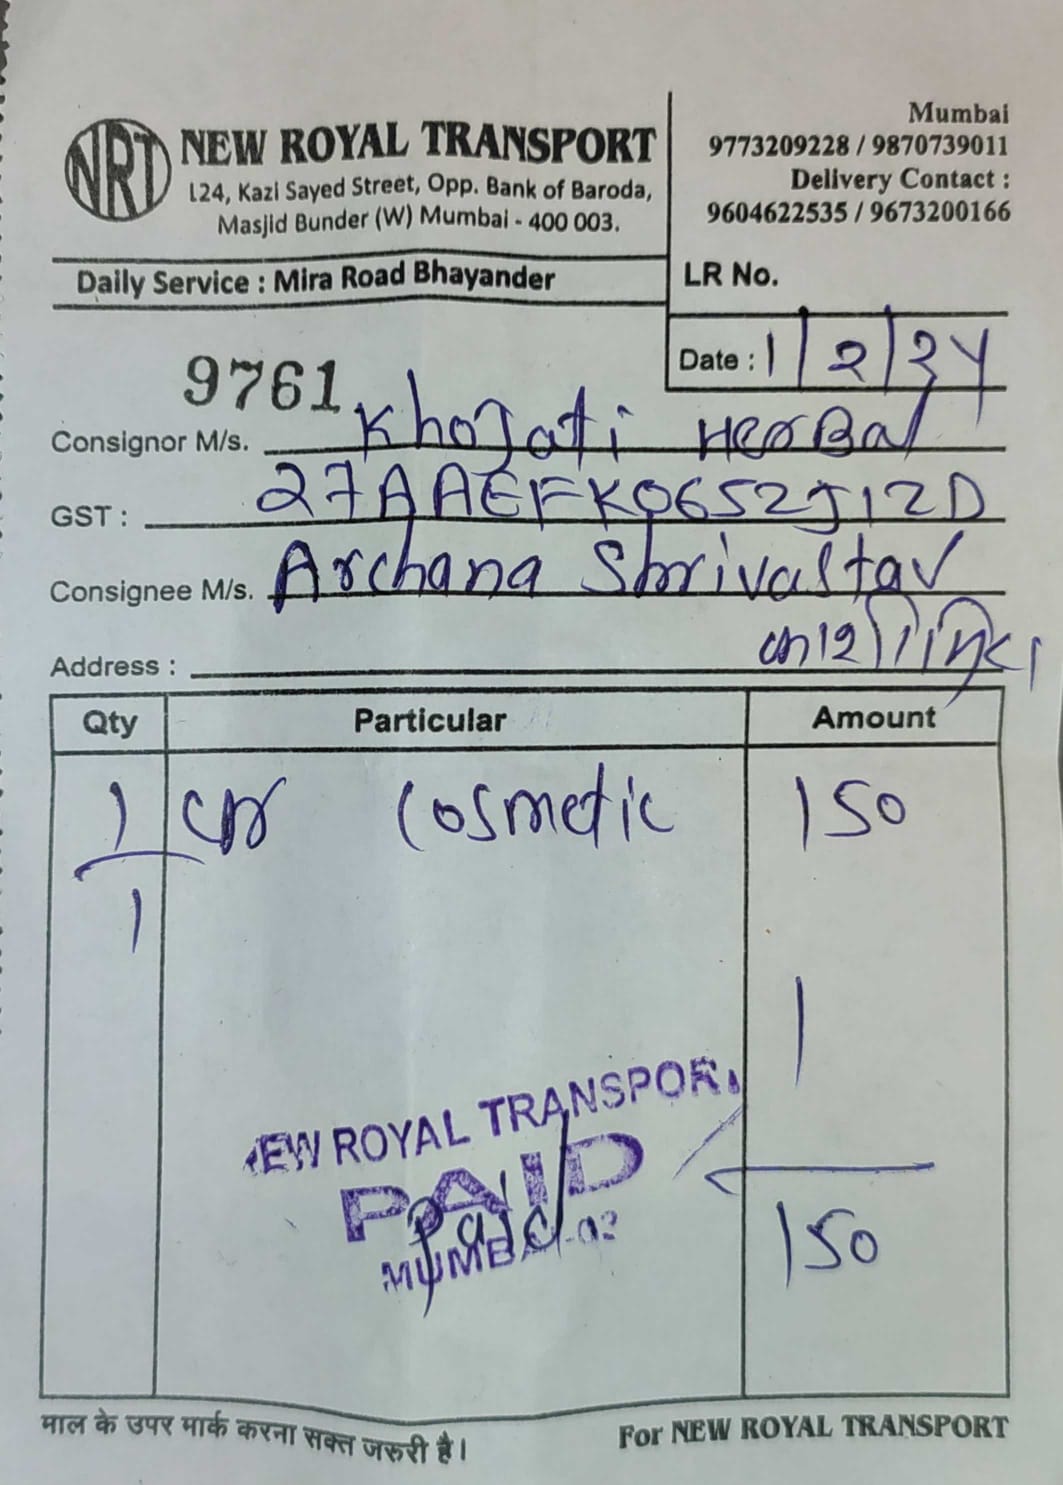 NRT NEW ROYAL TRANSPORT
124, Kazi Sayed Street, Opp. Bank of Baroda,
Masjid Bunder (W) Mumbai - 400 003.
Mumbai
9773209228 / 9870739011
Delivery Contact :
9604622535 / 9673200166
Daily Service : Mira Road Bhayander
LR No.
Date : 1/2/24
9761
Consignor M/s. Khojati Herbal
GST : 27AAEFK0652J1ZD
Consignee M/s. Archana Shrivastav
Address :
Qty Particular Amount
1 Cosmetic 150
1
NEW ROYAL TRANSPORT
PAID
Paid
MUMBAI-03
150
माल के उपर मार्क करना सक्त जरुरी है।
For NEW ROYAL TRANSPORT